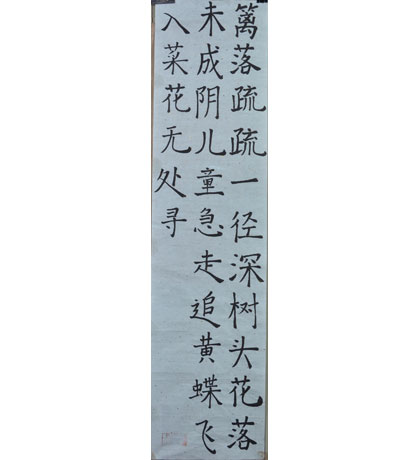 篱落疏疏一径深树头花落
未成阴儿童急走追黄蝶飞
入菜花无处寻